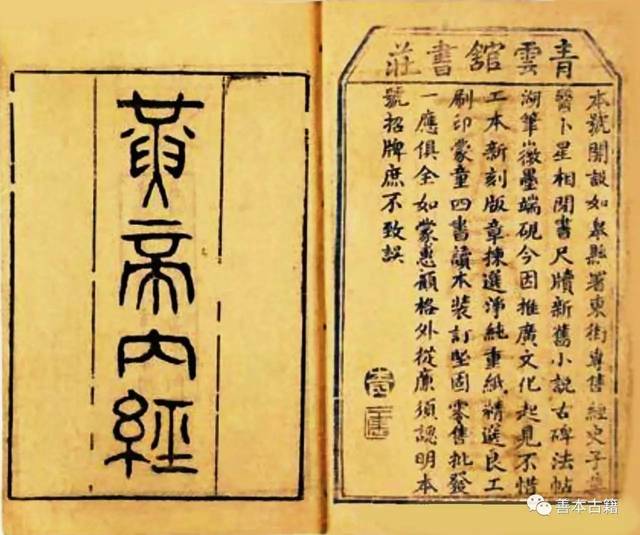 青雲舘書莊
本號開設如皋縣署東街專售經史子集
醫卜星相閒書尺牘新舊小説古碑法帖
湖筆徽墨端硯今因推廣文化起見不惜
工本新刻版章揀選淨純重紙精選良工
刷印蒙童四書讀本裝訂堅固零售批發
一應俱全如蒙惠顧格外從廉須認明本
號招牌庶不致誤
黃帝内經
善本古籍